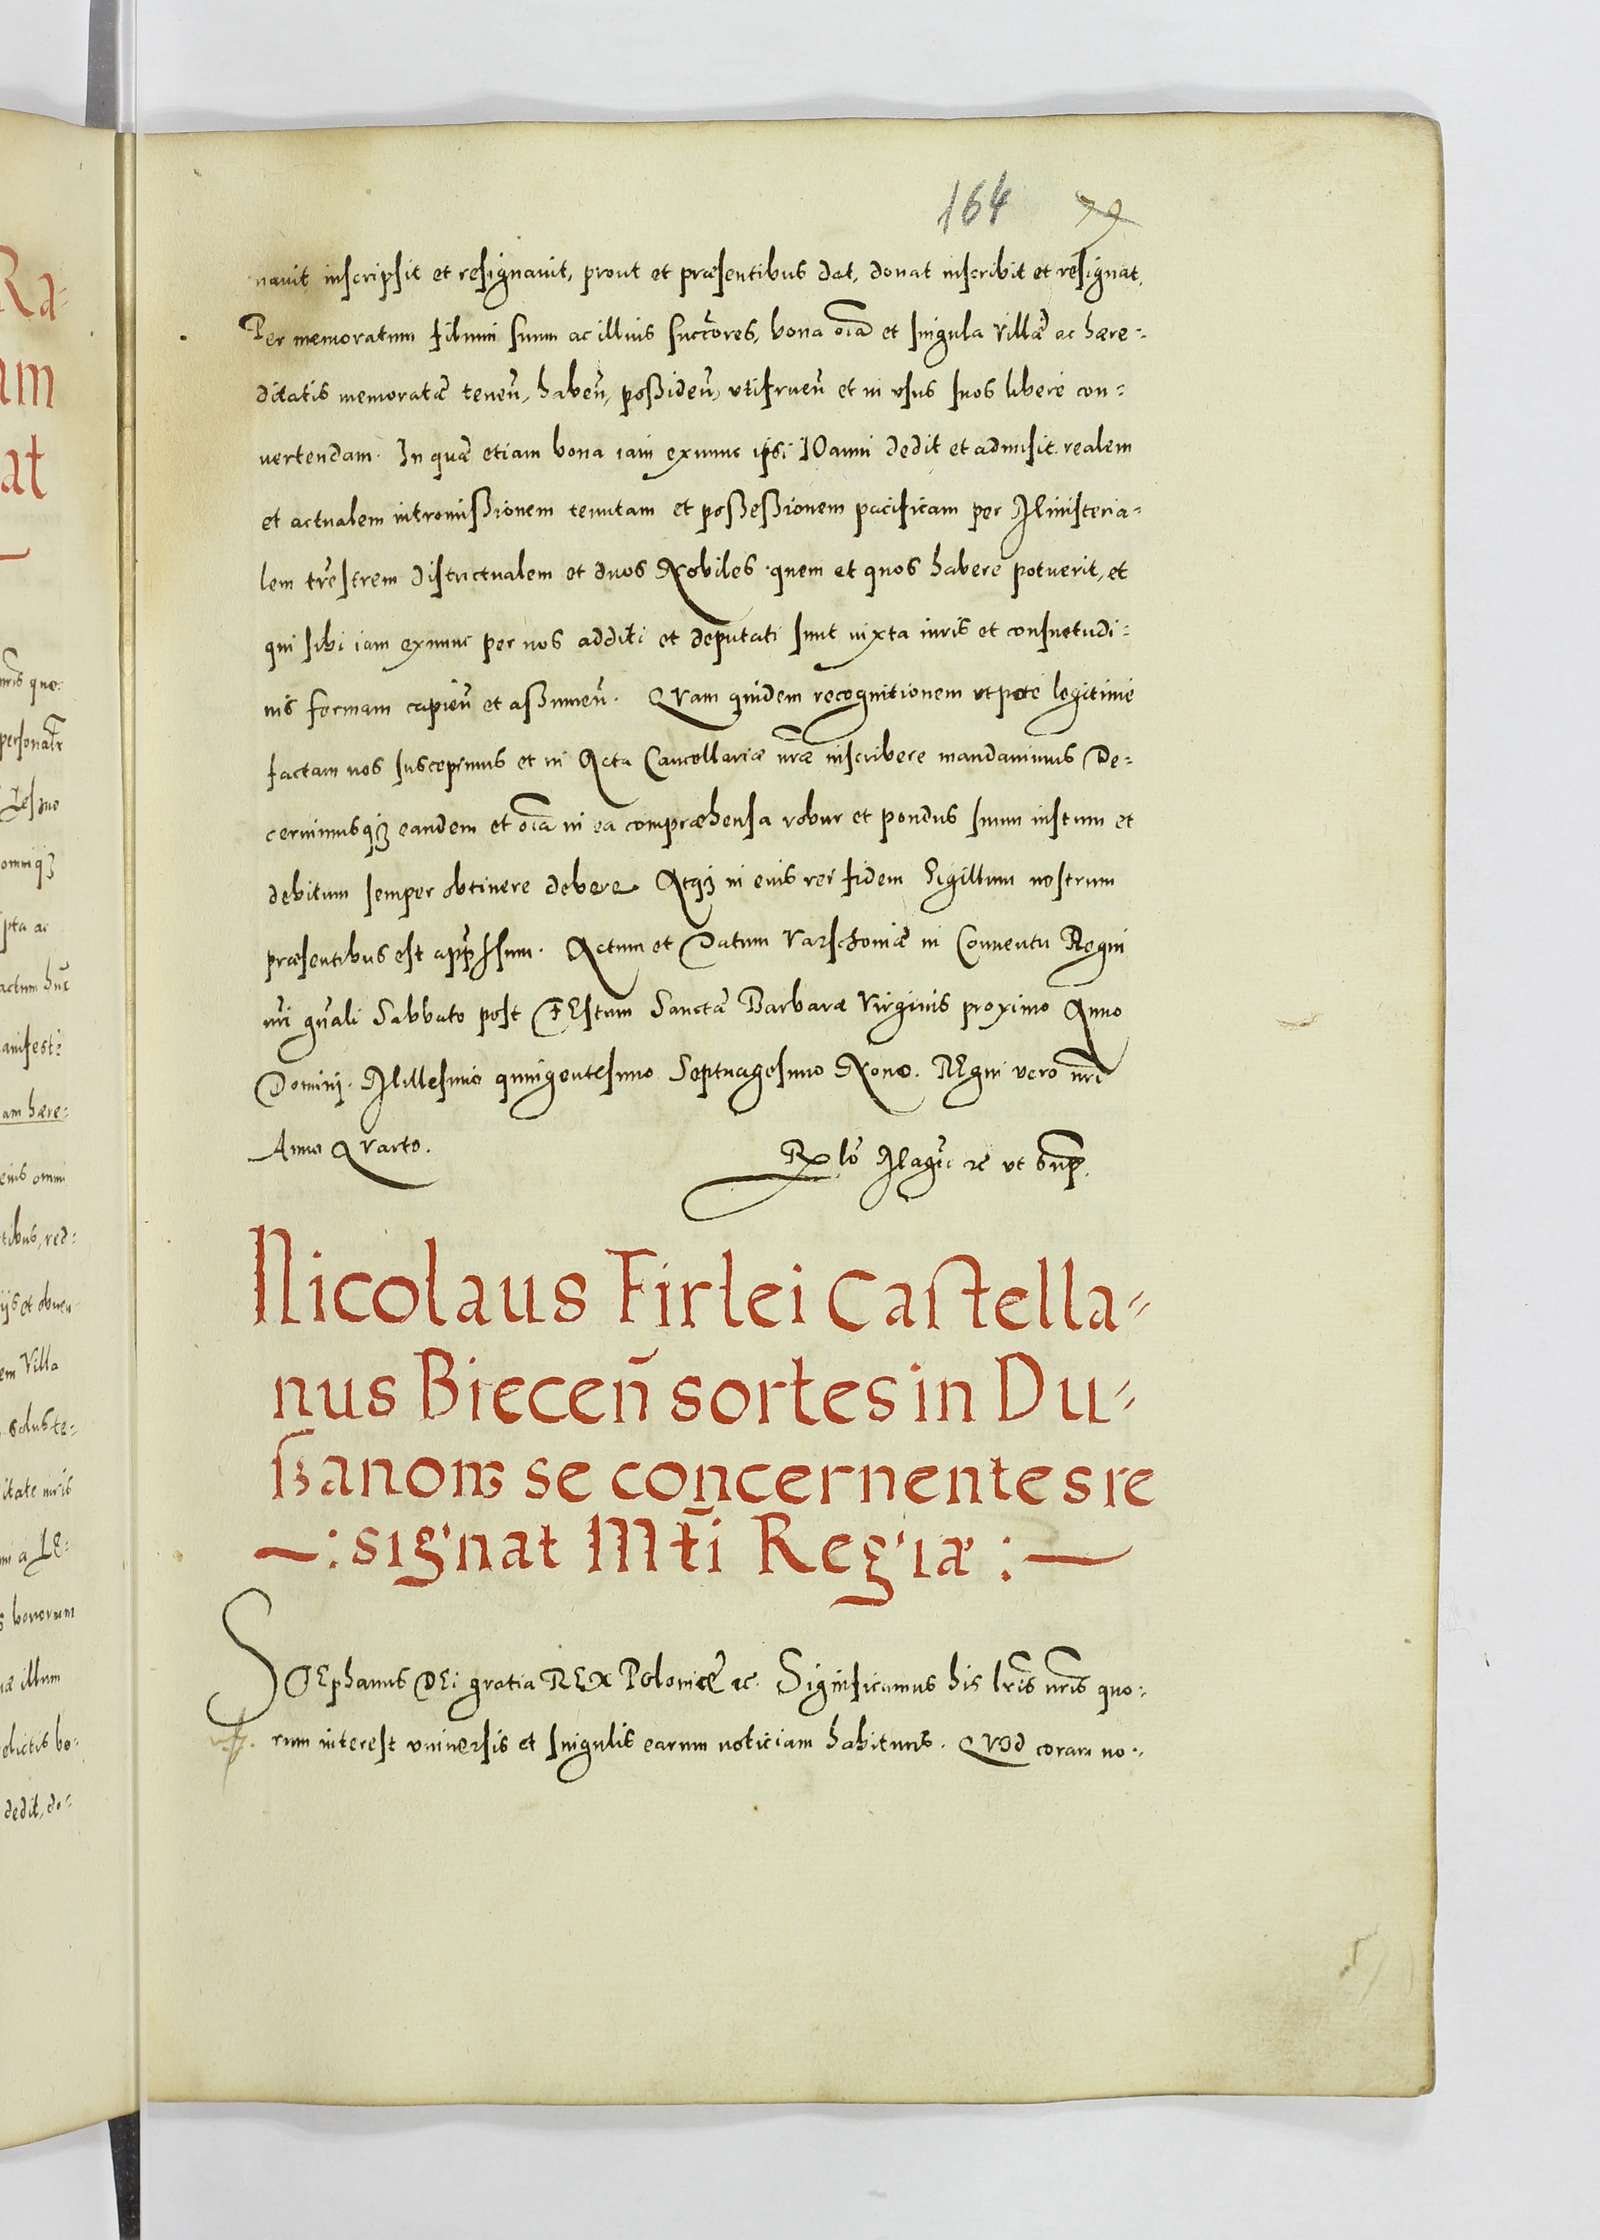 164 79
navit inscripsit et resignavit, prout et præsentibus dat, donat inscribit et resignat.
Per memoratum filium suum ac illius succ̃ores, bona oĩa et singula villæ ac hære-
ditatis memoratæ teneñ, habeñ, possideñ, utifrueñ et in usus suos libere con-
vertendam. In quæ etiam bona iam exnunc ipsi IOanni dedit et admisit realem
et actualem intromissionem tenutam et possessionem pacificam per Ministeria-
lem tr̃estrem districtualem et duos Nobiles quem et quos habere potuerit, et
qui sibi iam exnunc per nos additi et deputati sunt iuxta iuris et consuetudi-
nis formam capieñ et assumeñ. QVam quidem recognitionem utpote legitime
factam nos suscepimus et in Acta Cancellariæ nr̃æ inscribere mandavimus De-
cernimusq3 eandem et oĩa in ea compræhensa robur et pondus suum iustum et
debitum semper obtinere debere. Atq3 in eius rei fidem Sigillum nostrum
præsentibus est appr̃ssum. Actum et Datum Varschoviæ in Conventu Regni
nr̃i gñali Sabbato post FEstum Sanctæ Barbaræ Virginis proximo Anno
Domini. Millesimo quingentesimo Septuagesimo Nono. REgni vero nr̃i
Anno Qvarto.
Rlõ Magci ꝛc ut Sup̃.
Nicolaus Firlei Castella-
nus Biecen̄ sortes in Du-
ssanow se concernentes re
-: signat Mt̄i Regiæ :-
STEphanus DEi gratia REX Poloniæ ꝛc. Significamus his lr̃is nr̃is quo-
rum interest universis et singulis earum noticiam habituris. QVOd coram no-
Ra-
um
at
nr̃is quo-
personalr̃
Lesmo
omniq3
pta ac
actum
anifeste
am hære-
eius omni
tibus, red-
ijs et obven-
em Villa
solus te-
itate iuris
ni a LE-
s bonorum
æ illum
dictis bo-
dedit, do-